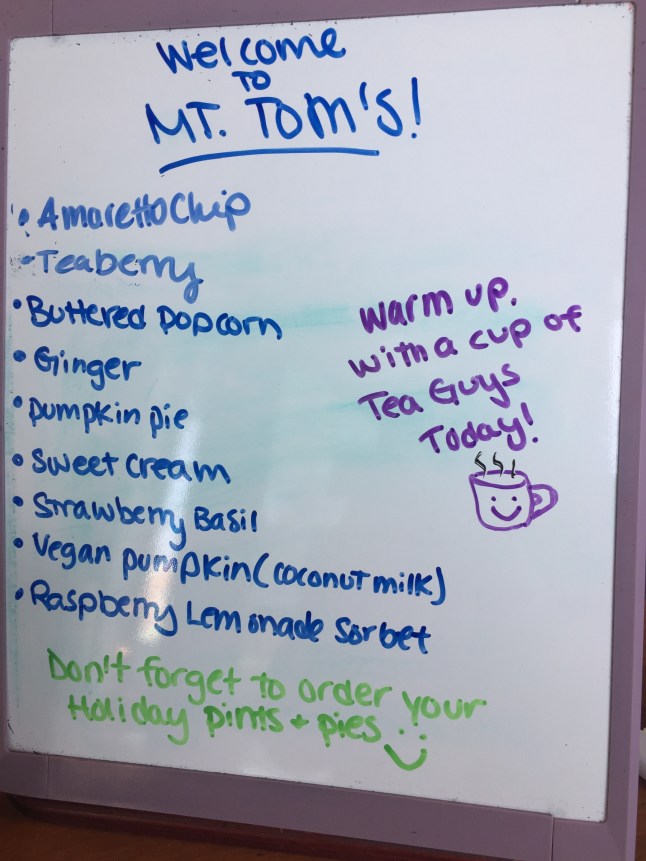 Welcome
TO
MT. TOM'S!
• Amaretto Chip
• Teaberry
• Buttered popcorn
• Ginger
• pumpkin pie
• Sweet Cream
• Strawberry Basil
• Vegan pumpkin (coconut milk)
• Raspberry Lemonade Sorbet
Warm up.
with a cup of
Tea Guys
Today!
Don't forget to order your
Holiday pints + pies